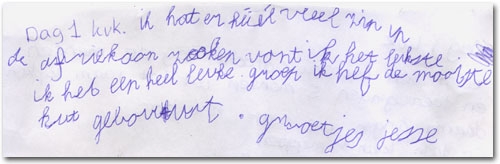 Dag 1 kvk. ik hat er heel veel zin in
de afriekaan zoeken vont ik het lukste
ik heb een heel leuke groep ik hef de mooiste
hut gebouwt. groetjes jesse